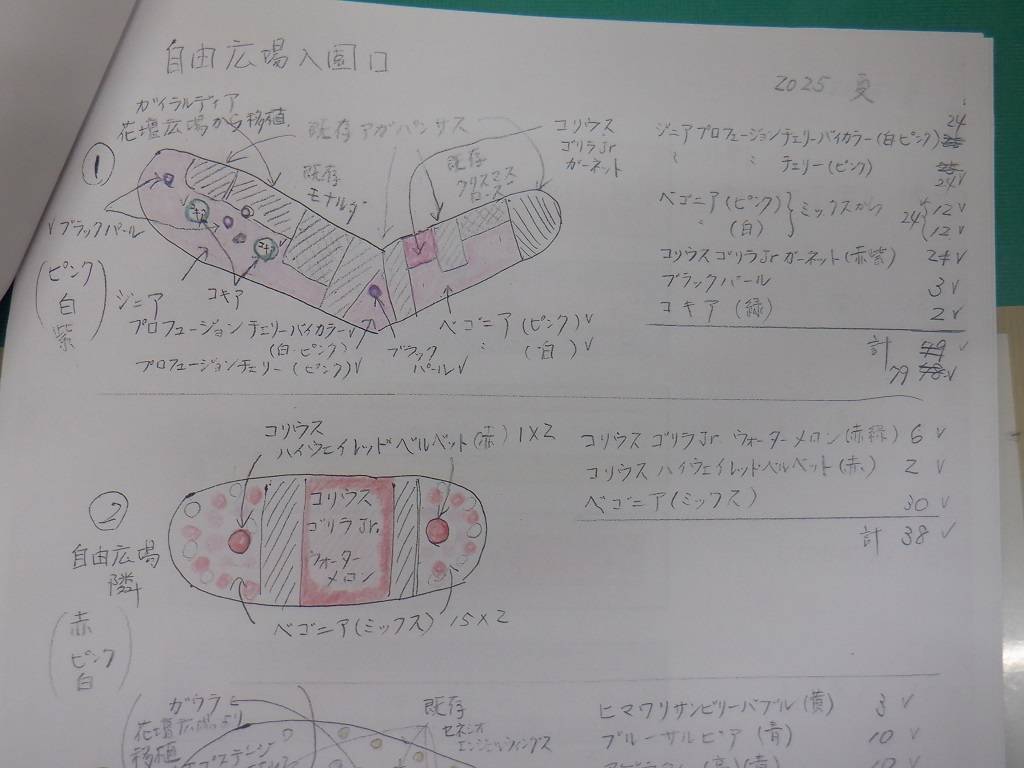 自由広場入園口
2025 夏
ガイラルディア
花壇広場から移植
既存アガパンサス
コリウス
ゴリラJr
ガーネット
①
既存
モナルダ
既存
クリスマス
ローズ
コキア
コキア
√ブラックパール
(ピンク
白
紫)
ジニア
プロフュージョンチェリーバイカラー√
(白・ピンク)√
プロフュージョンチェリー(ピンク)√
コキア
ブラック
パール√
ベゴニア(ピンク)√
〃 (白)√
24
ジニアプロフュージョンチェリーバイカラー(白ピンク)
〃 〃 チェリー(ピンク)
24√
ベゴニア(ピンク)}ミックスから 24{12√
〃 (白) 12√
コリウスゴリラJrガーネット(赤紫) 24√
ブラックパール 3√
コキア(緑) 2√
計 49√
79 78√
コリウス
ハイウェイレッドベルベット(赤) 1×2
②
自由広場
隣
(赤
ピンク
白)
コリウス
ゴリラJr.
ウォーター
メロン
ベゴニア(ミックス) 15×2
コリウスゴリラJr. ウォーターメロン(赤緑) 6√
コリウスハイウェイレッドベルベット(赤) 2√
ベゴニア(ミックス) 30√
計 38√
ガウラ
花壇広場より
移植
既存
セネシオ
エンジェルウィングス
ヒマワリサンビリーバブル(黄) 3√
ブルーサルビア(青) 10√